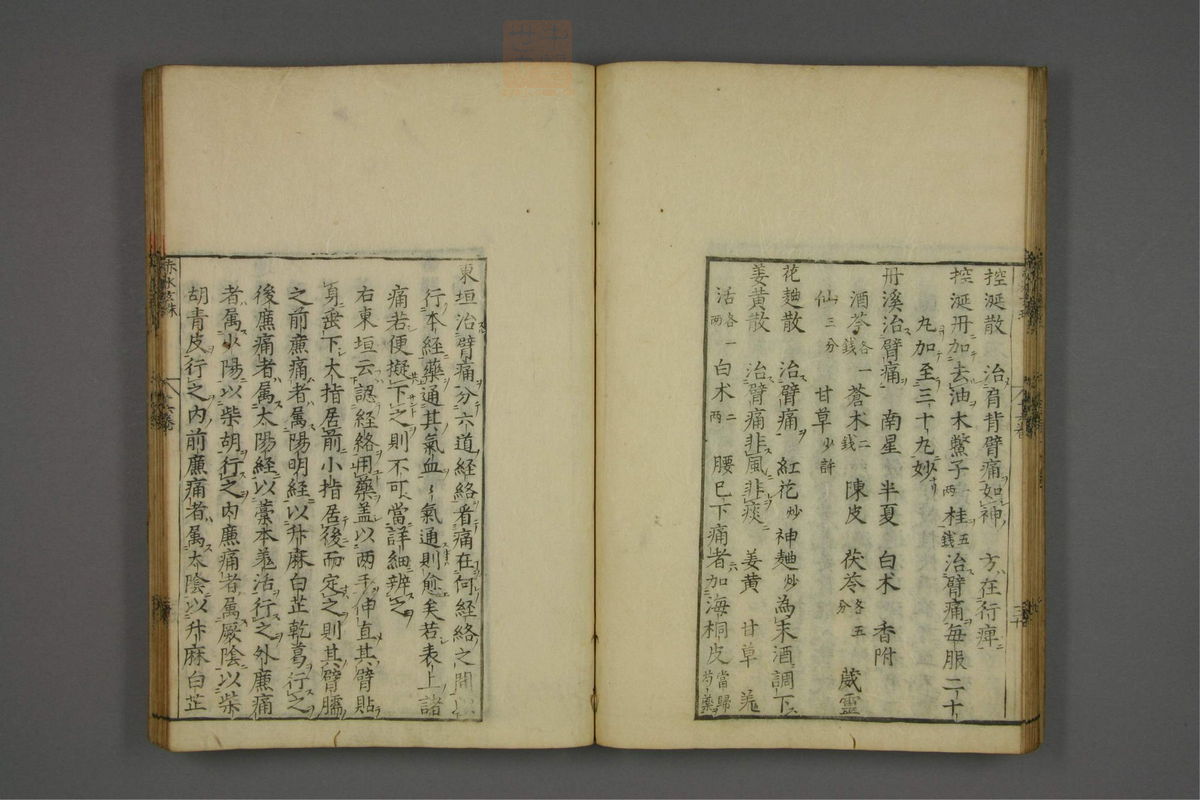 控涎散　治肩背臂痛如神　方在行痺
控涎丹加去油木鱉子一両桂五錢治臂痛每服二十
丸加至三十丸妙
丹溪治臂痛　南星　半夏　白朮　香附
酒芩各一錢　蒼朮二錢　陳皮　茯苓各五分　葳靈
仙三分　甘草少許
花麯散　治臂痛　紅花炒　神麯炒為末酒調下
姜黃散　治臂痛非風非痰　姜黃　甘草　羌
活各一両　白朮二両　腰已下痛者加海桐皮當歸芍藥
東垣治臂痛分六道経絡看痛在何経絡之間以
行本経藥通其氣血氣通則愈矣若表上諸
痛若便擬下之則不可當詳細辨之
右東垣云認経絡用藥蓋以兩手伸直其臂貼
身垂下大指居前小指居後而定之則其臂臑
之前廉痛者属陽明経以升麻白芷乾葛行之
後廉痛者属太陽経以藁本羌活行之外廉痛
者属少陽以柴胡行之內廉痛者属厥陰以柴
胡青皮行之內前廉痛者属太陰以升麻白芷
赤水玄珠